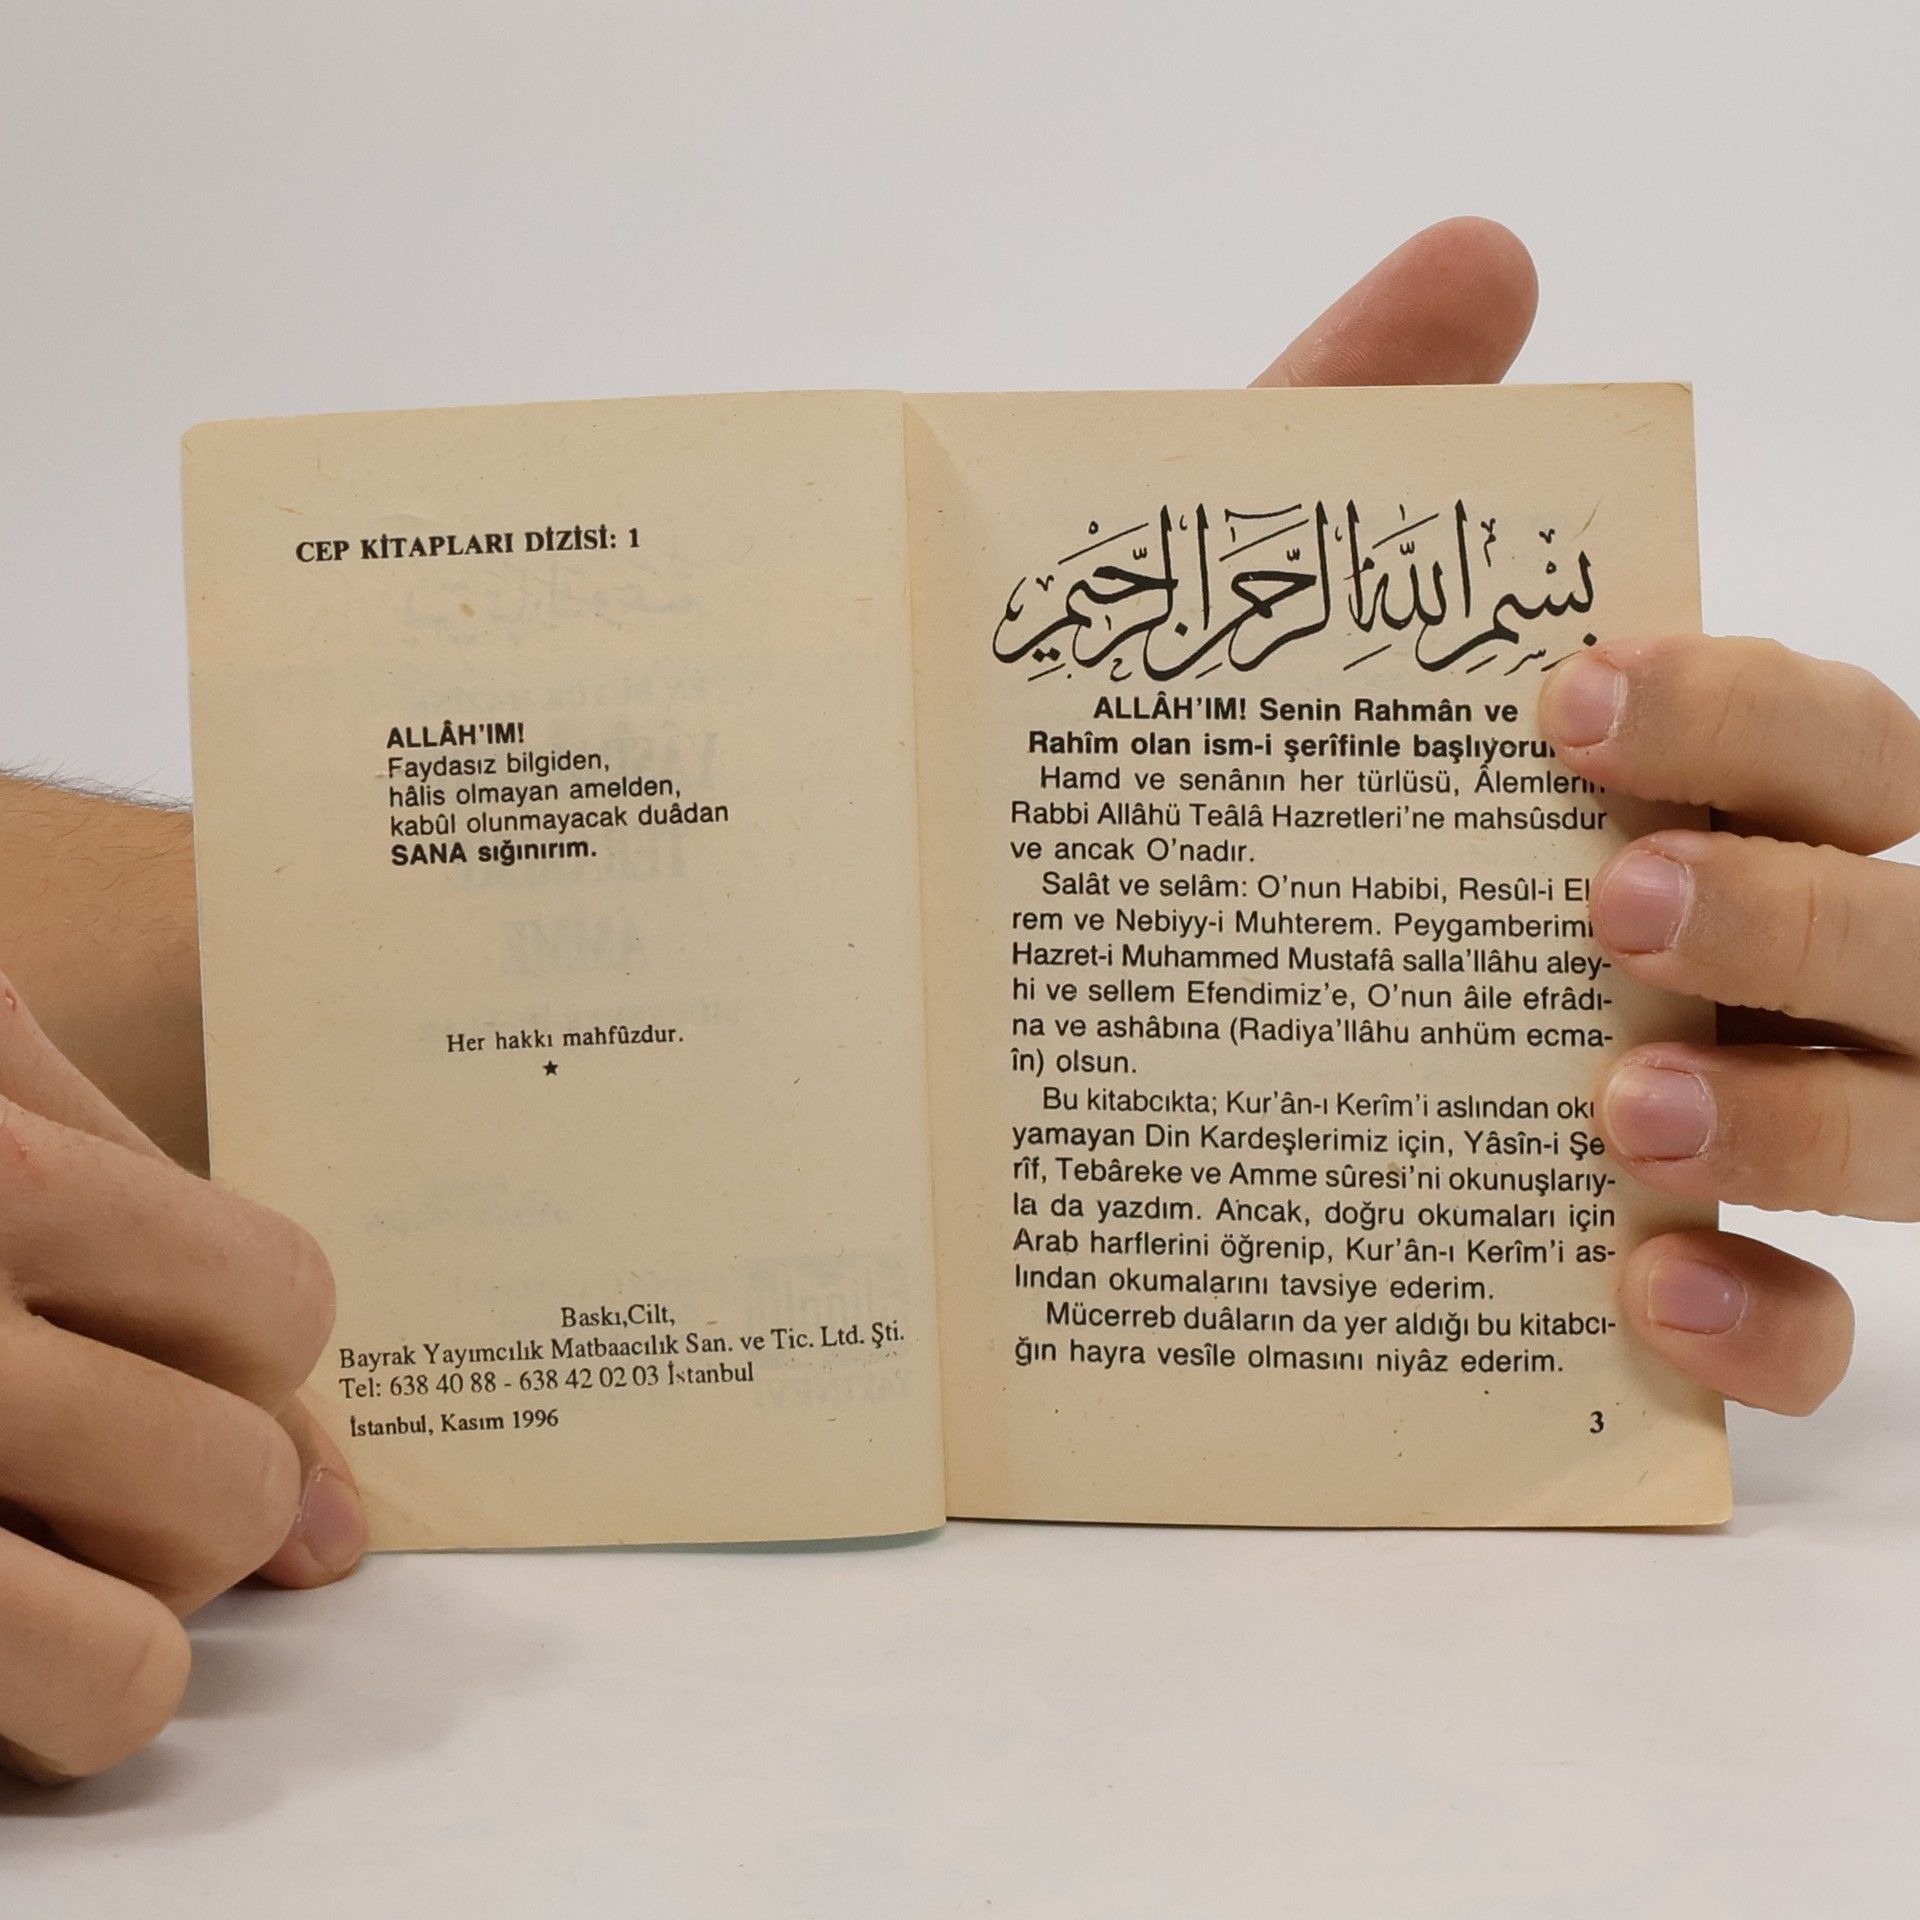 CEP KİTAPLARI DİZİSİ: 1
ALLÂH'IM!
Faydasız bilgiden,
hâlis olmayan amelden,
kabûl olunmayacak duâdan
SANA sığınırım.
Her hakkı mahfûzdur.
★
Baskı,Cilt,
Bayrak Yayımcılık Matbaacılık San. ve Tic. Ltd. Şti.
Tel: 638 40 88 - 638 42 02 03 İstanbul
İstanbul, Kasım 1996
بِسْمِ اللَّهِ الرَّحْمَنِ الرَّحِيمِ
ALLÂH'IM! Senin Rahmân ve
Rahîm olan ism-i şerîfinle
Hamd ve senânın her türlüsü,
Rabbi Allâhü Teâlâ Hazretleri'ne mahsûsdur
ve ancak O'nadır.
Salât ve selâm: O'nun Habibi, Resûl-i
rem ve Nebiyy-i Muhterem. 
Hazret-i Muhammed Mustafâ salla'llâhu aley-
hi ve sellem Efendimiz'e, O'nun âile efrâdı-
na ve ashâbına (Radiya'llâhu anhüm ecma-
în) olsun.
Bu kitabcıkta; Kur'ân-ı Kerîm'i aslından
yamayan Din Kardeşlerimiz için, Yâsîn-i Şe
rîf, Tebâreke ve Amme sûresi'ni okunuşlarıy-
la da yazdım. Ancak, doğru okumaları için
Arab harflerini öğrenip, Kur'ân-ı Kerîm'i as-
lından okumalarını tavsiye ederim.
Mücerreb duâların da yer aldığı bu kitabcı-
ğın hayra vesîle olmasını niyâz ederim.
3